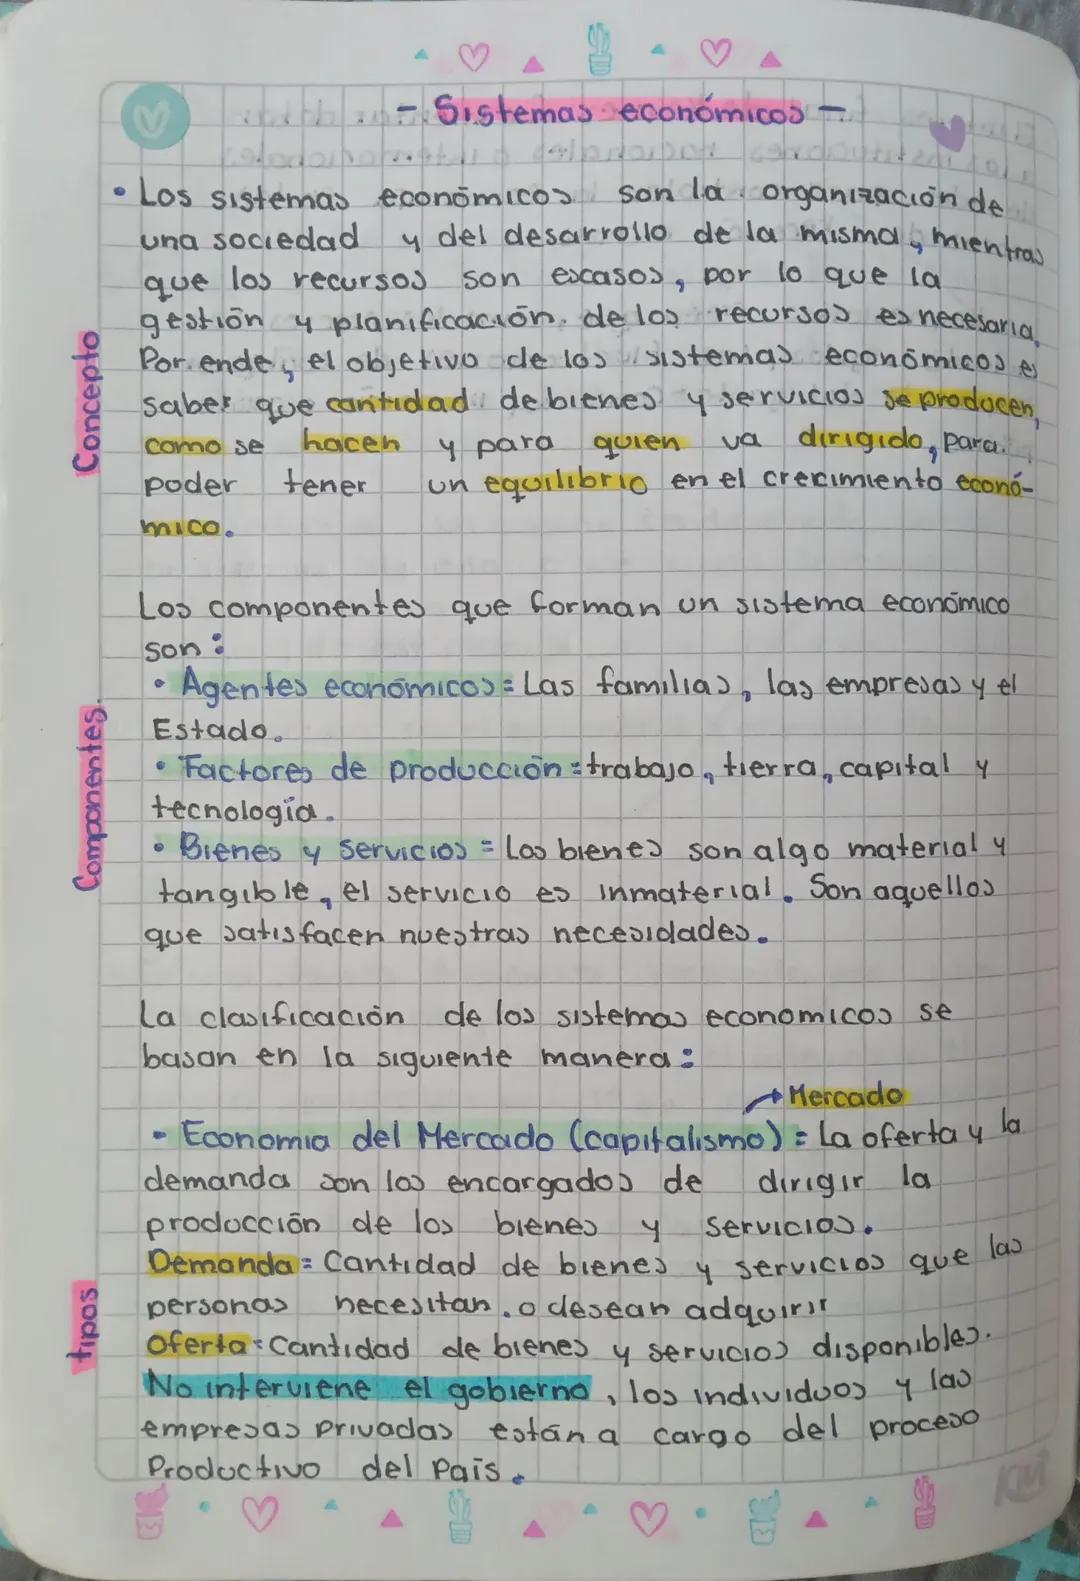 - Sistemas económicos -
• Los sistemas económicos son la organización de
una sociedad y del desarrollo de la misma, mientras
que los recursos son escasos, por lo que la
gestión y planificación de los recursos es necesaria.
Por ende, el objetivo de los sistemas económicos es
saber que cantidad de bienes y servicios se producen,
como se hacen y para quien va dirigido, para
poder tener un equilibrio en el crecimiento econó-
mico.
Concepto
Los componentes que forman un sistema económico
son:
• Agentes económicos = Las familias, las empresas y el
Estado.
• Factores de producción = trabajo, tierra, capital y
tecnología.
• Bienes y servicios = Los bienes son algo material y
tangible, el servicio es inmaterial. Son aquellos
que satisfacen nuestras necesidades.
Componentes.
La clasificación de los sistemas economicos se
basan en la siguiente manera:
→ Mercado
• Economia del Mercado (capitalismo) = La oferta y la
demanda son los encargados de dirigir la
producción de los bienes y servicios.
Demanda = Cantidad de bienes y servicios que las
personas necesitan o desean adquirir
Oferta = Cantidad de bienes y servicios disponibles.
No interviene el gobierno, los individuos y las
empresas privadas están a cargo del proceso
Productivo del País.
tipos